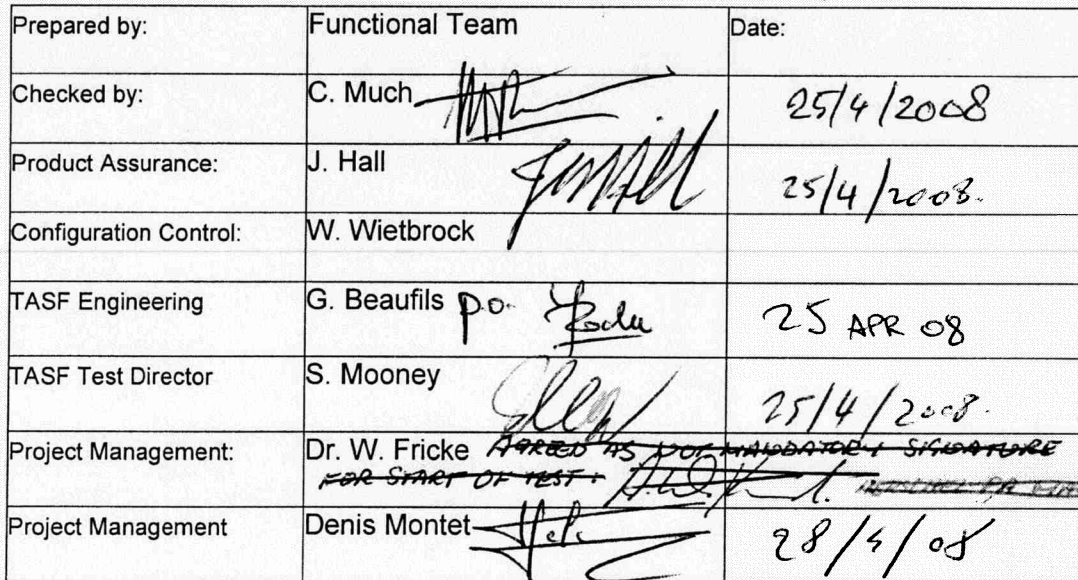 Prepared by: Functional Team Date:
Checked by: C. Much 25/4/2008
Product Assurance: J. Hall 25/4/2008.
Configuration Control: W. Wietbrock
TASF Engineering G. Beaufils p.o. 25 APR 08
TASF Test Director S. Mooney 25/4/2008.
Project Management: Dr. W. Fricke AGREED AS NOT MANDATORY SIGNATURE
FOR START OF TEST.
Project Management Denis Montet 28/4/08